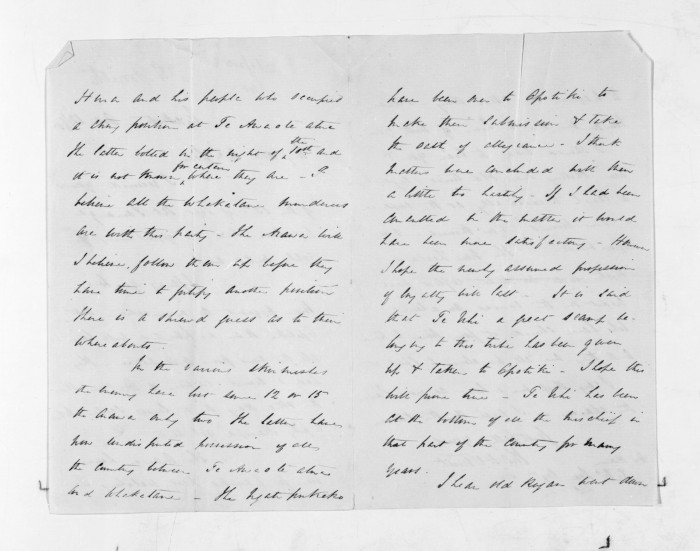 and his people who occupied
a strong position at Te Awa o te atua
the latter bolted in the night of the 10th and
it is not known for certain where they are - I
believe all the Whakatane murderers
are with this party - The Arawa will
I believe follow them up before they
have time to fortify another position
There is a shrewd guess as to their
whereabouts.
In the various skirmishes
the enemy have lost some 12 or 15
the Arawa only two The latter have
now undisputed possession of all
the country between Te Awa o te atua
and Whakatane - The Ngati
have been over to Opotiki to
make their submission & take
the oath of allegiance - I think
matters were concluded with them
a little too hastily - If I had been
consulted in the matter it would
have been more satisfactory - However
I hope the newly assumed profession
of loyalty will last - It is said
that Te Uhi a great scamp be-
longing to this tribe has been given
up & taken to Opotiki - I hope this
will prove true - Te Uhi has been
at the bottom of all the mischief in
that part of the country for many
years.
I hear old Rogan went down